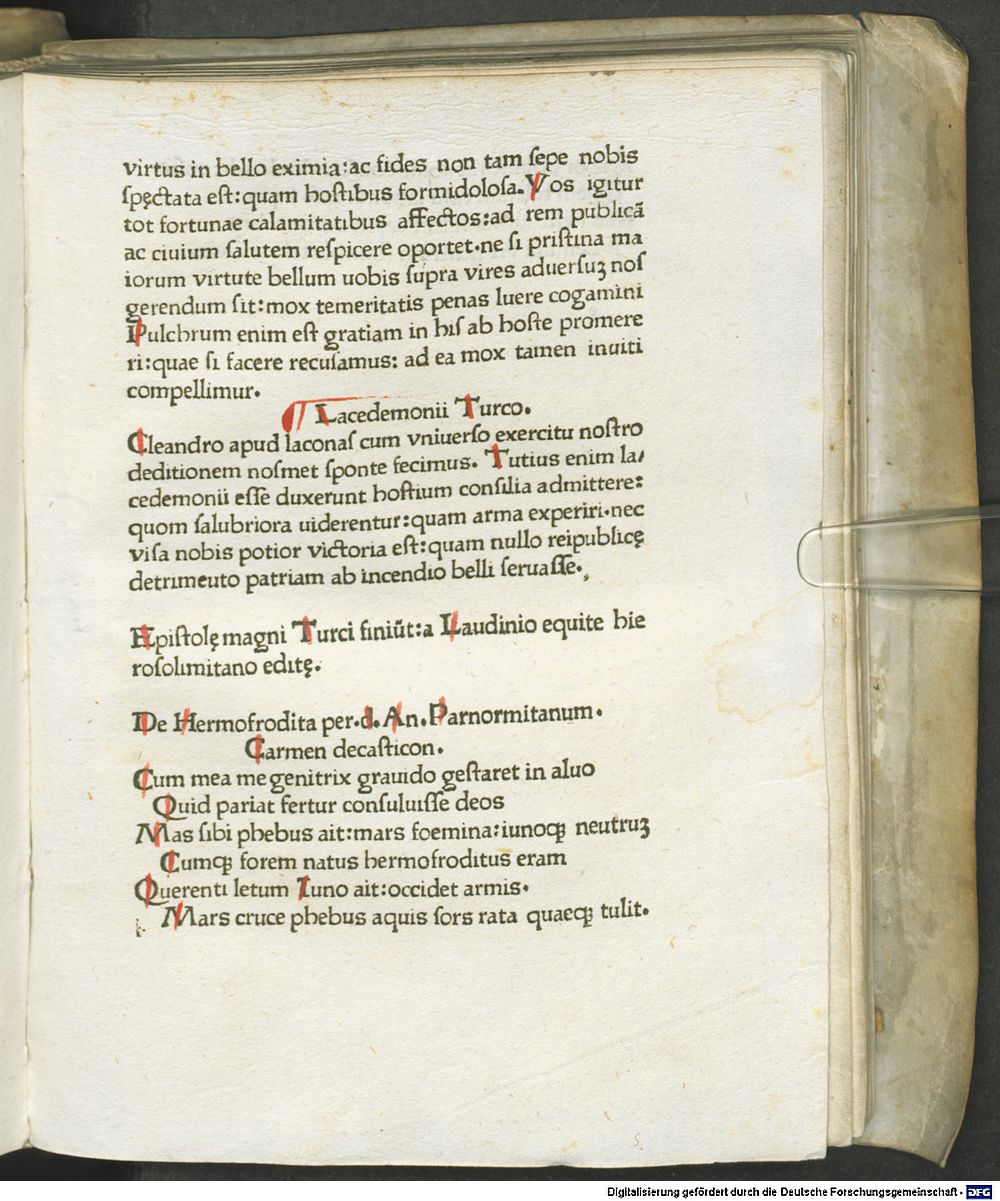 virtus in bello eximia:ac fides non tam ſepe nobis
ſpęctata eſt:quam hoſtibus formidoloſa. Vos igitur
tot fortunae calamitatibus affectos:ad rem publicā
ac ciuium ſalutem reſpicere oportet.ne ſi priſtina ma
iorum virtute bellum uobis ſupra vires aduerſuꝫ noſ
gerendum ſit:mox temeritatis penas luere cogamini
Pulchrum enim eſt gratiam in hiſ ab hoſte promere
ri:quae ſi facere recuſamus: ad ea mox tamen inuiti
compellimur.
¶ Lacedemonii Turco.
Cleandro apud laconaſ cum vniuerſo exercitu noſtro
deditionem noſmet ſponte fecimus. Tutius enim la/
cedemonii eſſe duxerunt hoſtium conſilia admittere:
quom ſalubriora uiderentur:quam arma experiri.nec
viſa nobis potior victoria eſt:quam nullo reipublicę
detrimeuto patriam ab incendio belli ſeruaſſe.,
Epiſtolę magni Turci finiūt:a Laudinio equite hie
roſolimitano editę.
De Hermofrodita per.d.An.Parnormitanum.
Carmen decaſticon.
Cum mea me genitrix grauido geſtaret in aluo
Quid pariat fertur conſuluiſſe deos
Mas ſibi phebus ait:mars foemina:iunoqꝫ neutruꝫ
Cumqꝫ forem natus hermofroditus eram
Querenti letum Iuno ait:occidet armis.
Mars cruce phebus aquis ſors rata quaeqꝫ tulit.
Digitalisierung gefördert durch die Deutsche Forschungsgemeinschaft - DFG